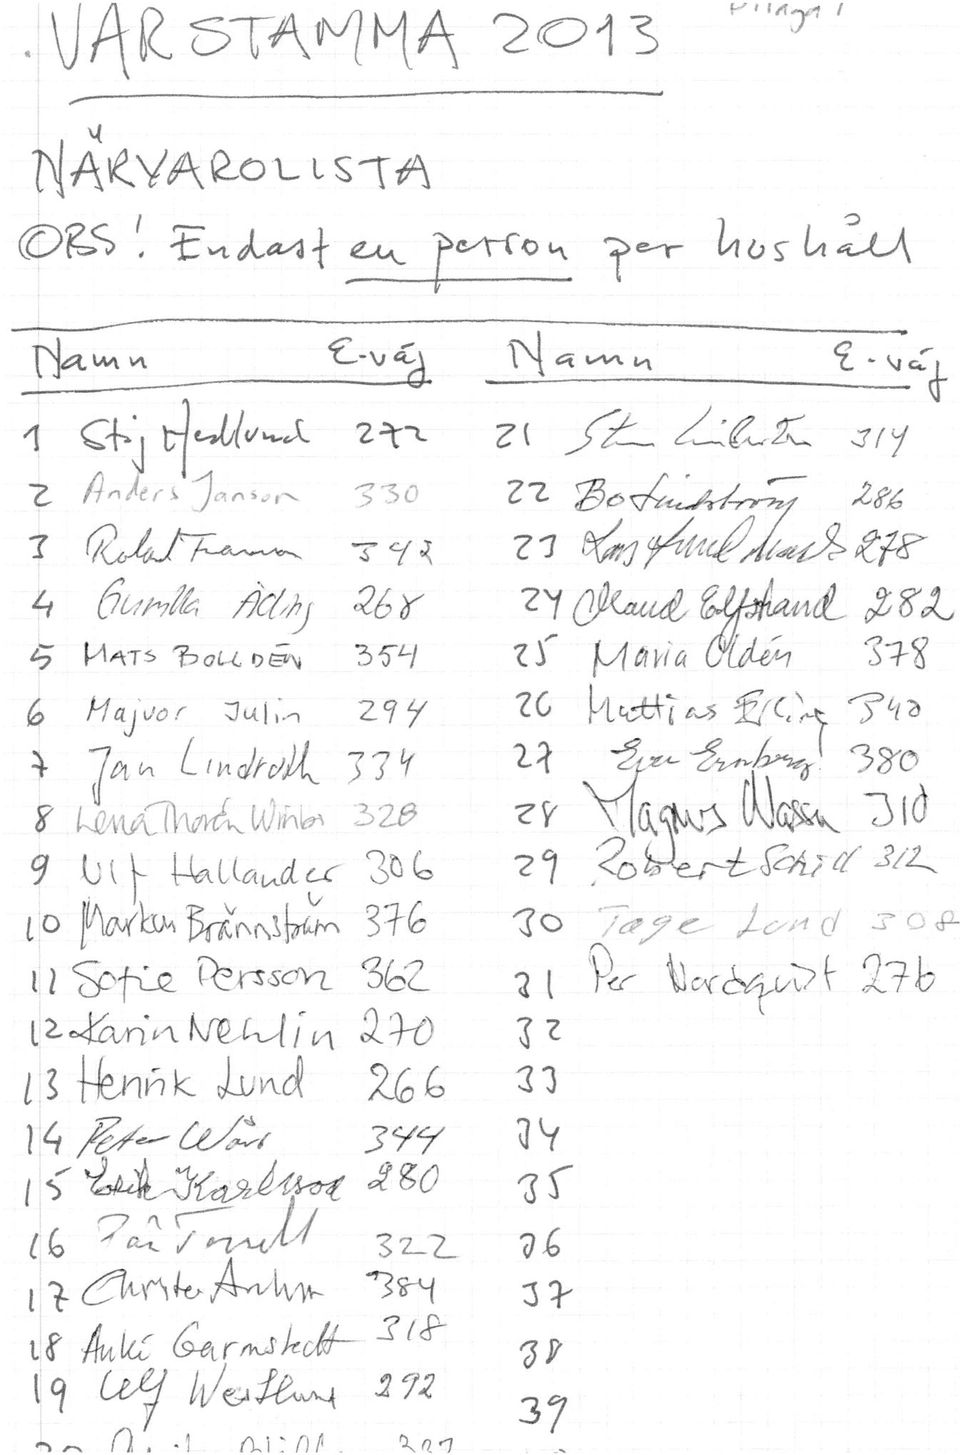 VÅRSTAMMA 2013
NÄRVAROLISTA
OBS! Endast en person per hushåll
Namn E-väg Namn E-väg
1 Stig Hedlund 272 21 314
2 Anders Janson 330 22 Bo Lindström 286
3 342 23 Lars 278
4 Gunilla Äding 268 24 Maud Elfstrand 282
5 MATS BOLLDÉN 354 25 Maria Oldén 378
6 Majvor Julin 294 26 Mattias Erling 340
7 Jan Lindroth 334 27 Eva Ernberg 380
8 Lena Thorén 328 28 Magnus 310
9 Ulf Hallander 306 29 Robert Schill 312
10 Markus Brännström 376 30 Tage Lund 308
11 Sofie Persson 362 31 Per Nordquist 276
12 Karin Nehlin 270 32
13 Henrik Lund 266 33
14 Peter 344 34
15 Erik Karlsson 280 35
16 322 36
17 Christer 384 37
18 Anki Garmstedt 318 38
19 Ulf Westlund 292 39